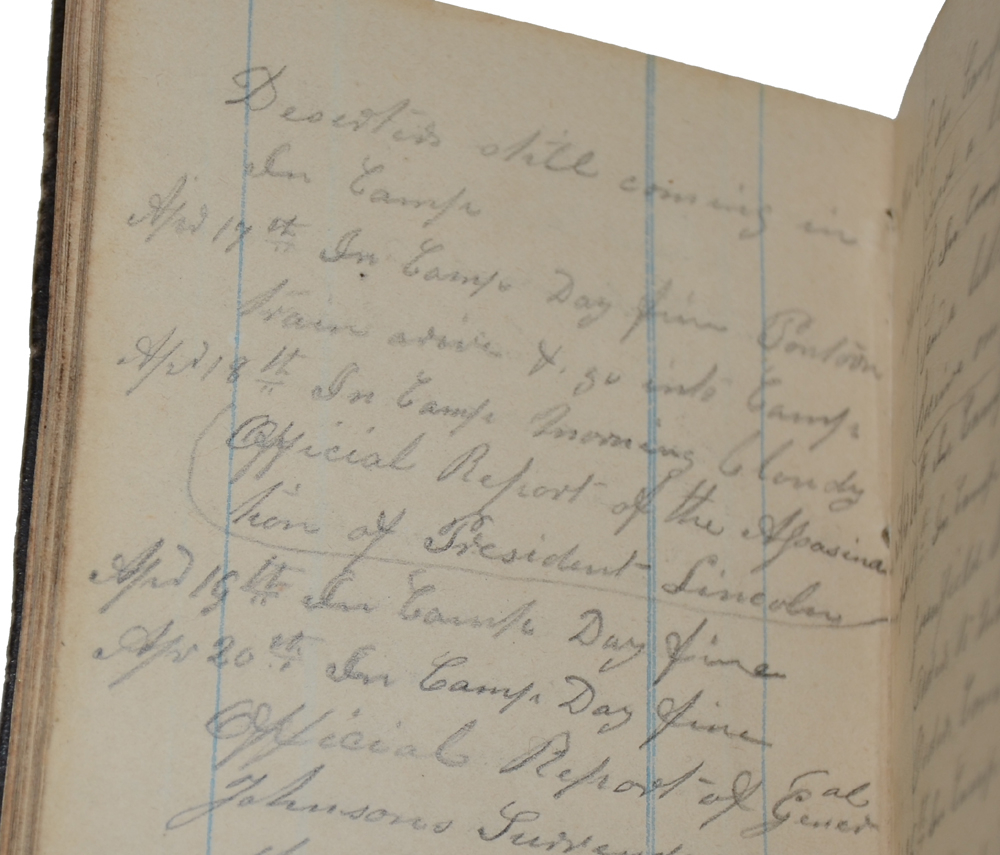 Deserters still coming in
In Camp
Apr 17th In Camp Day fine Pontoon
train arive & go into Camp
Apr 18th In Camp Morning Cloudy
Official Report of the Assasina
tion of President Lincoln
Apr 19th In Camp Day fine
Apr 20th In Camp Day fine
Official Report of Gener al
Johnsons Surren